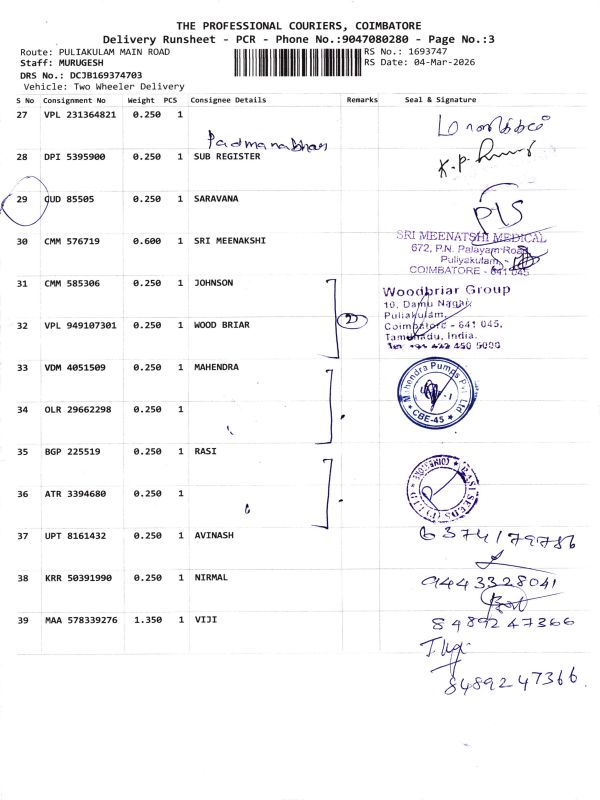 THE PROFESSIONAL COURIERS, COIMBATORE
Delivery Runsheet - PCR - Phone No.:9047080280 - Page No.:3
Route: PULIAKULAM MAIN ROAD
RS No.: 1693747
Staff: MURUGESH
RS Date: 04-Mar-2026
DRS No.: DCJB169374703
Vehicle: Two Wheeler Delivery
S No Consignment No Weight PCS Consignee Details Remarks Seal & Signature
27 VPL 231364821 0.250 1
Padmanabhan
28 DPI 5395900 0.250 1 SUB REGISTER
K.P.
29 GUD 85505 0.250 1 SARAVANA
30 CMM 576719 0.600 1 SRI MEENAKSHI
SRI MEENATSHI MEDICAL
672, P.N. Palayam Road
Puliyakulam,
COIMBATORE - 641 045
31 CMM 585306 0.250 1 JOHNSON
Woodbriar Group
10, Damu Nagar,
Puliakulam,
32 VPL 949107301 0.250 1 WOOD BRIAR 2
Coimbatore - 641 045,
Tamilnadu, India.
Tel: +91 422 450 5000
33 VDM 4051509 0.250 1 MAHENDRA
Mahendra Pumps Pvt Ltd
CBE-45
34 OLR 29662298 0.250 1
35 BGP 225519 0.250 1 RASI
RASI SEEDS (P) LTD
36 ATR 3394680 0.250 1
37 UPT 8161432 0.250 1 AVINASH 6374179786
38 KRR 50391990 0.250 1 NIRMAL 9443328041
39 MAA 578339276 1.350 1 VIJI 8489247366
8489247366